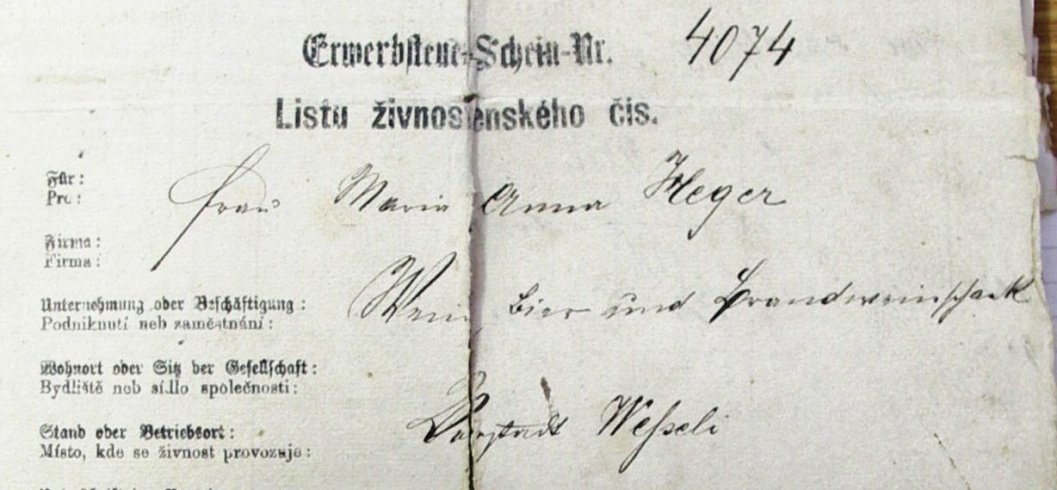 Erwerbsteuer-Schein-Nr. 4074
Listu živnostenského čís.
Für:
Pro:
Frau Maria Anna Heger
Firma:
Firma:
Unternehmung oder Beschäftigung:
Podniknutí neb zaměstnání:
Wein, Bier und Brandweinschank
Wohnort oder Sitz der Gesellschaft:
Bydliště neb sídlo společnosti:
Stand oder Betriebsort:
Místo, kde se živnost provozuje:
Vorstadt Wesseli